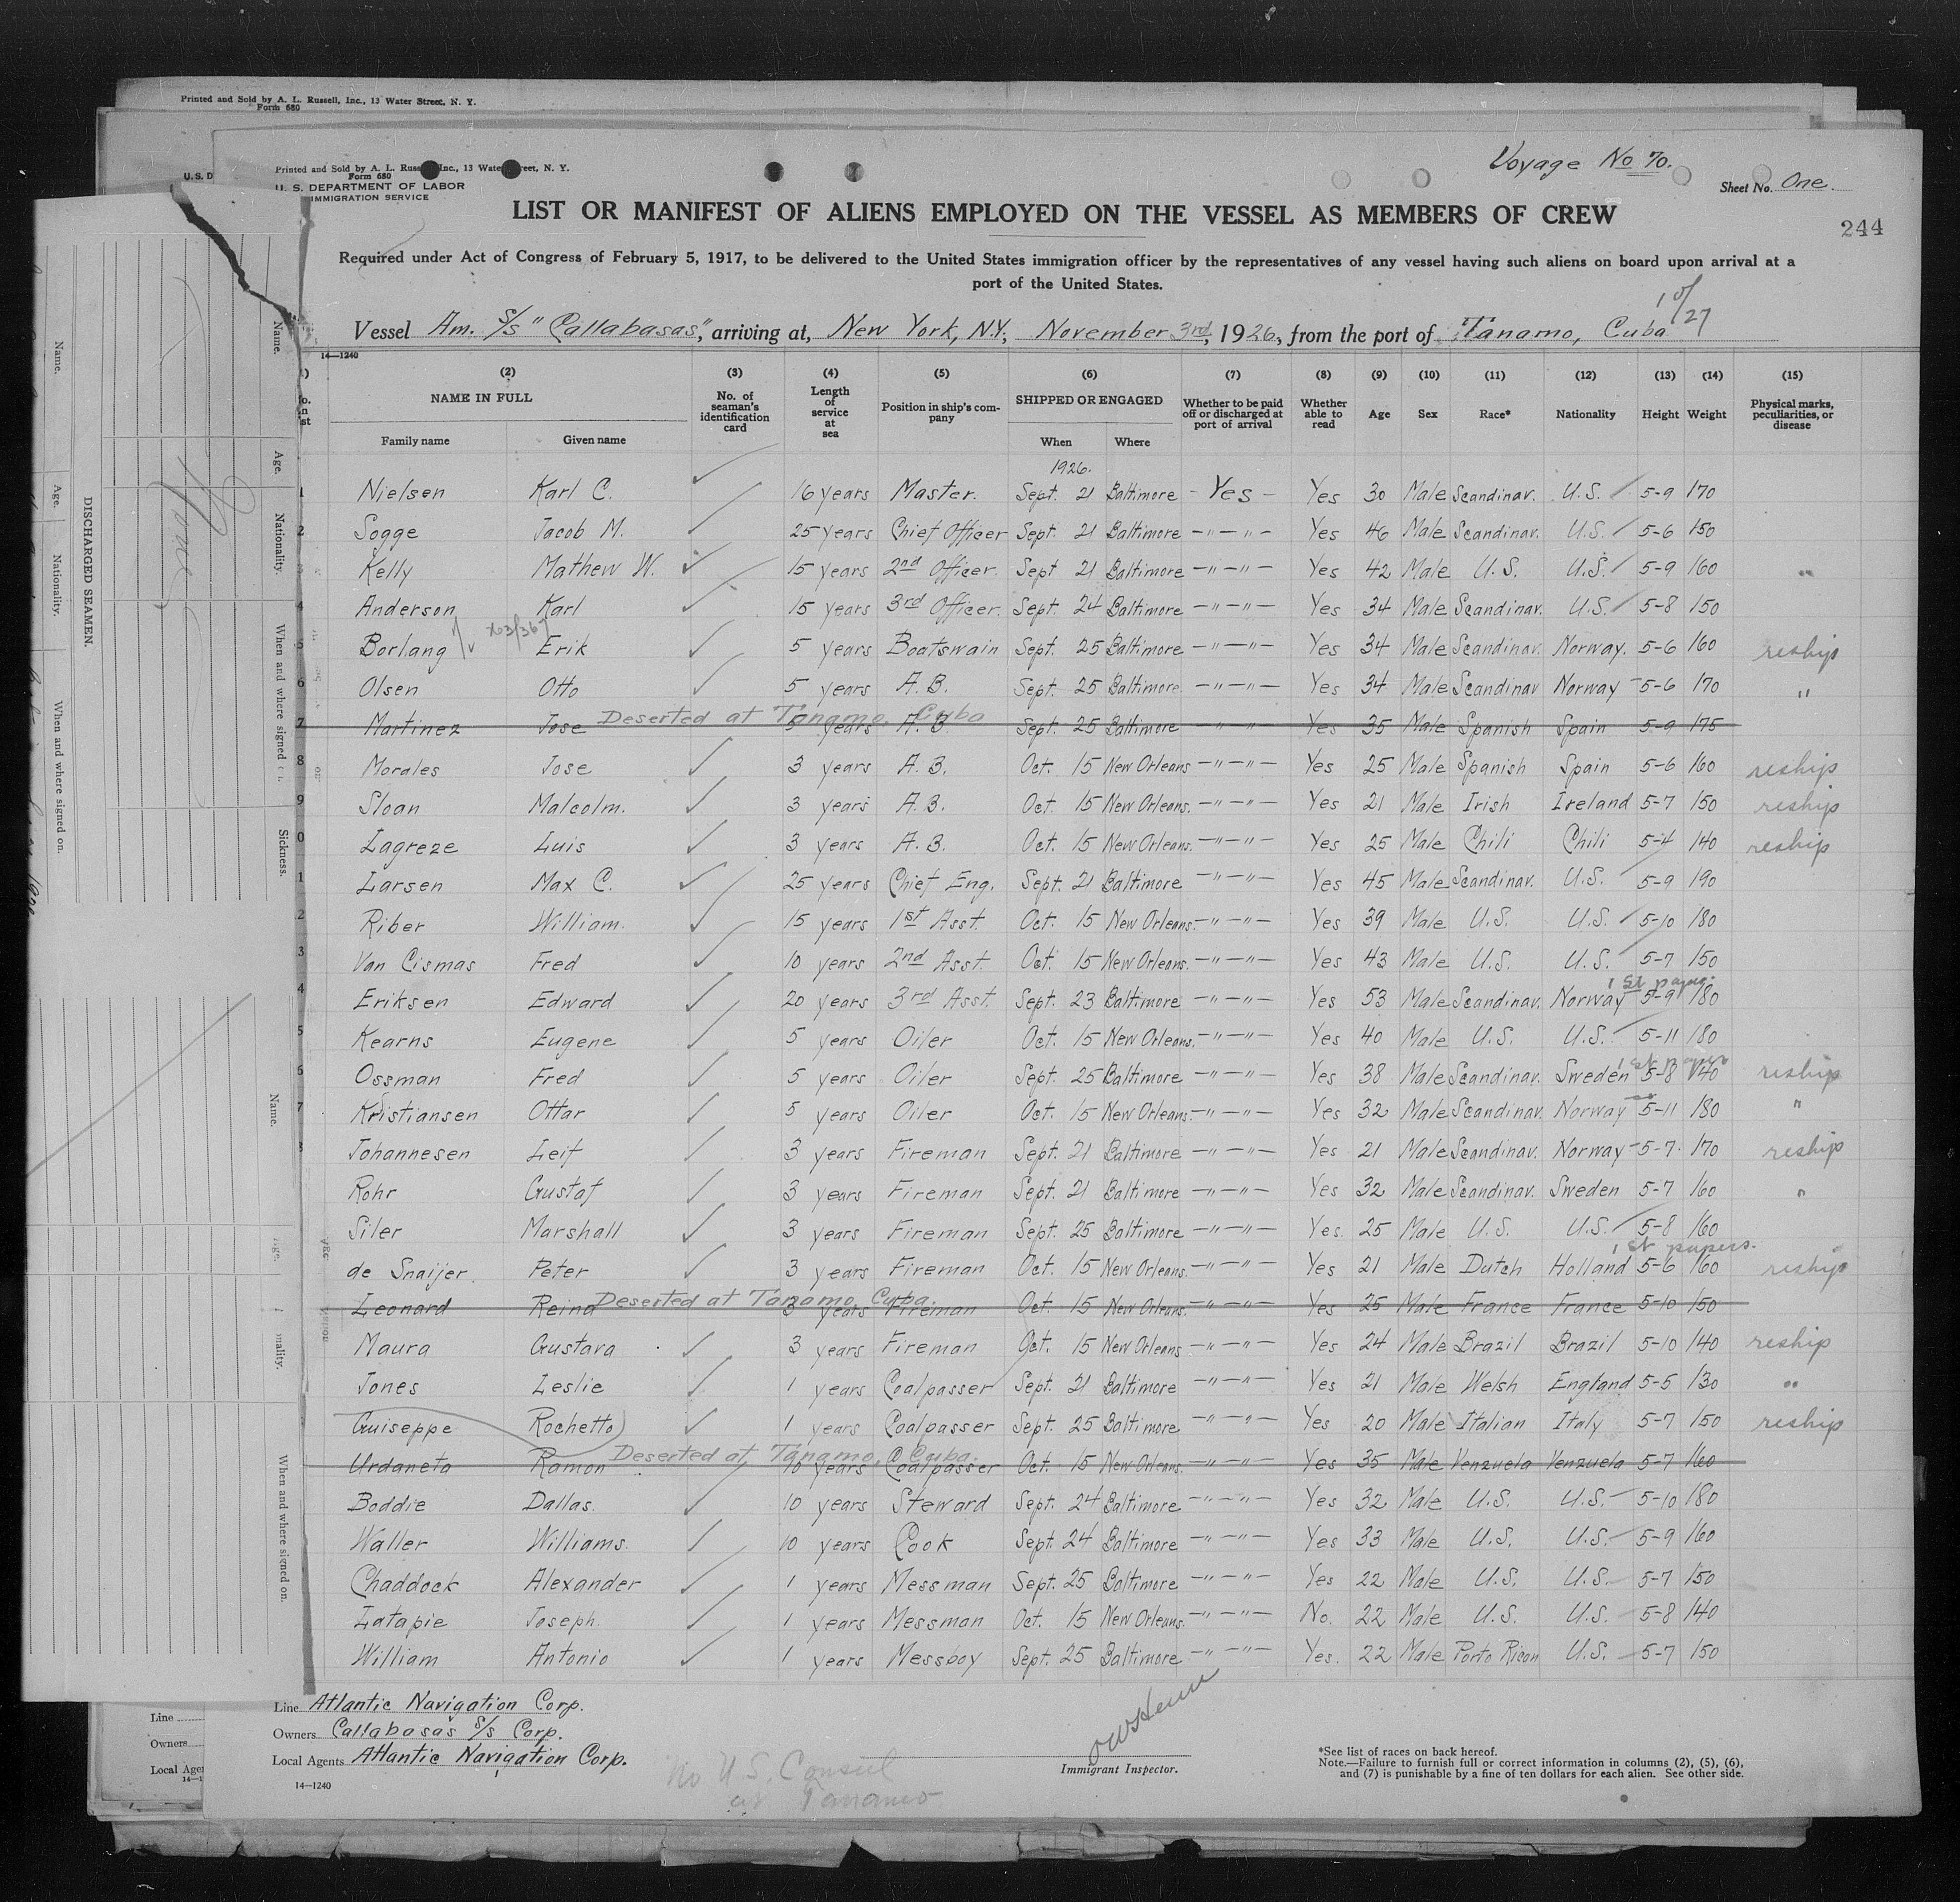 Printed and Sold by A. L. Russell, Inc., 13 Water Street, N. Y.
Form 680
Printed and Sold by A. L. Russell, Inc., 13 Water Street, N. Y.
Form 680
U. S. D
U. S. DEPARTMENT OF LABOR
IMMIGRATION SERVICE
Voyage No 70.
Sheet No. One.
LIST OR MANIFEST OF ALIENS EMPLOYED ON THE VESSEL AS MEMBERS OF CREW
244
Required under Act of Congress of February 5, 1917, to be delivered to the United States immigration officer by the representatives of any vessel having such aliens on board upon arrival at a
port of the United States.
Vessel Am. S/s "Callabasas", arriving at, New York, N.Y., November 3rd, 1926, from the port of Tanamo, Cuba
14—1240
(2) (3) (4) (5) (6) (7) (8) (9) (10) (11) (12) (13) (14) (15)
NAME IN FULL No. of seaman's identification card Length of service at sea Position in ship's company SHIPPED OR ENGAGED Whether to be paid off or discharged at port of arrival Whether able to read Age Sex Race* Nationality Height Weight Physical marks, peculiarities, or disease
Family name Given name When Where
1926.
1 Nielsen Karl C. 16 years Master. Sept. 21 Baltimore - Yes - Yes 30 Male Scandinav. U.S. 5-9 170
2 Sogge Jacob M. 25 years Chief Officer Sept. 21 Baltimore —"—"— Yes 46 Male Scandinav. U.S. 5-6 150
Kelly Mathew W. 15 years 2nd Officer. Sept 21 Baltimore —"—"— Yes 42 Male U.S. U.S. 5-9 160 "
4 Anderson Karl 15 years 3rd Officer. Sept. 24 Baltimore —"—"— Yes 34 Male Scandinav. U.S. 5-8 150
5 Borlang Erik 5 years Boatswain Sept. 25 Baltimore —"—"— Yes 34 Male Scandinav. Norway. 5-6 160 reship
6 Olsen Otto 5 years A.B. Sept. 25 Baltimore —"—"— Yes 34 Male Scandinav Norway 5-6 170 "
Deserted at Tanamo, Cuba
7 Martinez Jose 5 years A.B. Sept. 25 Baltimore —"—"— Yes 35 Male Spanish Spain 5-9 175
8 Morales Jose 3 years A.B. Oct. 15 New Orleans —"—"— Yes 25 Male Spanish Spain 5-6 160 reship
9 Sloan Malcolm. 3 years A.B. Oct. 15 New Orleans. —"—"— Yes 21 Male Irish Ireland 5-7 150 reship
0 Lagreze Luis 3 years A.B. Oct. 15 New Orleans. —"—"— Yes 25 Male Chili Chili 5-4 140 reship
1 Larsen Max C. 25 years Chief Eng. Sept. 21 Baltimore —"—"— Yes 45 Male Scandinav. U.S. 5-9 190
2 Riber William. 15 years 1st Asst. Oct. 15 New Orleans. —"—"— Yes 39 Male U.S. U.S. 5-10 180
3 Van Cismas Fred 10 years 2nd Asst. Oct. 15 New Orleans. —"—"— Yes 43 Male U.S. U.S. 5-7 150
1st papers
4 Eriksen Edward 20 years 3rd Asst. Sept. 23 Baltimore —"—"— Yes 53 Male Scandinav. Norway 5-9 180
5 Kearns Eugene 5 years Oiler Oct. 15 New Orleans. —"—"— Yes 40 Male U.S. U.S. 5-11 180
1st papers
6 Ossman Fred 5 years Oiler Sept. 25 Baltimore —"—"— Yes 38 Male Scandinav. Sweden 5-8 140 reship
7 Kristiansen Ottar 5 years Oiler Oct. 15 New Orleans. —"—"— Yes 32 Male Scandinav. Norway 5-11 180 "
8 Johannesen Leif 3 years Fireman Sept. 21 Baltimore —"—"— Yes 21 Male Scandinav. Norway 5-7 170 reship
Rohr Gustaf 3 years Fireman Sept. 21 Baltimore —"—"— Yes 32 Male Scandinav. Sweden 5-7 160 "
Siler Marshall 3 years Fireman Sept. 25 Baltimore —"—"— Yes. 25 Male U.S. U.S. 5-8 160
1st papers.
de Snaijer. Peter 3 years Fireman Oct. 15 New Orleans. —"—"— Yes 21 Male Dutch Holland 5-6 160 reship
Deserted at Tanamo, Cuba.
Leonard Reind 3 years Fireman Oct. 15 New Orleans —"—"— Yes 25 Male France France 5-10 150
Maura Gustava 3 years Fireman Oct. 15 New Orleans —"—"— Yes 24 Male Brazil Brazil 5-10 140 reship
Jones Leslie 1 years Coalpasser Sept. 21 Baltimore —"—"— Yes 21 Male Welsh England 5-5 130 "
Guiseppe Rochetto 1 years Coalpasser Sept. 25 Baltimore —"—"— Yes 20 Male Italian Italy 5-7 150 reship
Deserted at Tanamo, Cuba.
Urdaneta Ramon 10 years Coalpasser Oct. 15 New Orleans. —"—"— Yes 35 Male Venzuela Venzuela 5-7 160
Boddie Dallas. 10 years Steward Sept. 24 Baltimore —"—"— Yes 32 Male U.S. U.S. 5-10 180
Waller Williams. 10 years Cook Sept. 24 Baltimore —"—"— Yes 33 Male U.S. U.S. 5-9 160
Chaddock Alexander 1 years Messman Sept. 25 Baltimore —"—"— Yes 22 Male U.S. U.S. 5-7 150
Latapie Joseph. 1 years Messman Oct. 15 New Orleans. —"—"— No. 22 Male U.S. U.S. 5-8 140
William Antonio 1 years Messboy Sept. 25 Baltimore —"—"— Yes. 22 Male Porto Rican U.S. 5-7 150
Line Atlantic Navigation Corp.
Owners Callabasas S/s Corp.
Local Agents Atlantic Navigation Corp.
14—1240
No U.S. Consul
at Tanamo
Immigrant Inspector.
*See list of races on back hereof.
Note.—Failure to furnish full or correct information in columns (2), (5), (6),
and (7) is punishable by a fine of ten dollars for each alien. See other side.
Line
Owners
Local Agen
14—1
DISCHARGED SEAMEN.
Name.
Age.
Nationality.
When and where signed on.
Name.
Age.
Nationality.
When and where signed on.
Sickness.
None
Name.
Age.
When and where signed on.